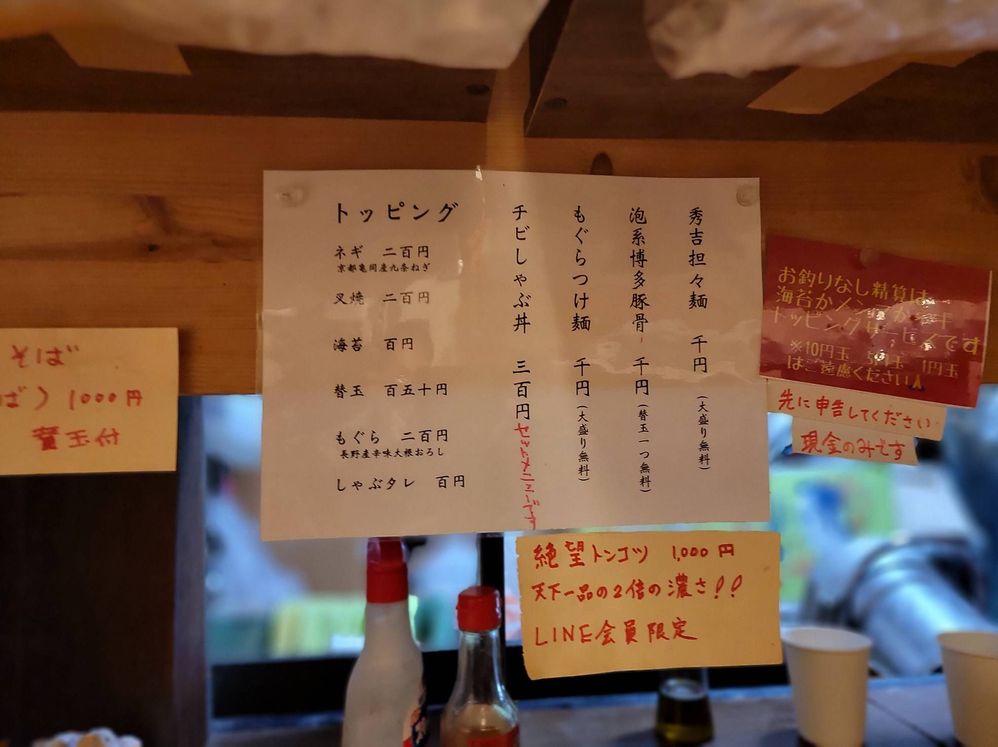 トッピング
ネギ 二百円
京都亀岡産九条ねぎ
叉焼 二百円
海苔 百円
替玉 百五十円
もぐら 二百円
長野産辛味大根おろし
しゃぶタレ 百円
秀吉担々麺 千円(大盛り無料)
泡系博多豚骨 千円(替玉一つ無料)
もぐらつけ麺 千円(大盛り無料)
チビしゃぶ丼 三百円 セットメニューです
絶望トンコツ 1,000円
天下一品の2倍の濃さ!!
LINE会員限定
お釣りなし精算は
海苔かメンマか
トッピングサービスです
※10円玉 5円玉 1円玉
はご遠慮ください
先に申告してください
現金のみです
そば
ば) 1000円
替玉付